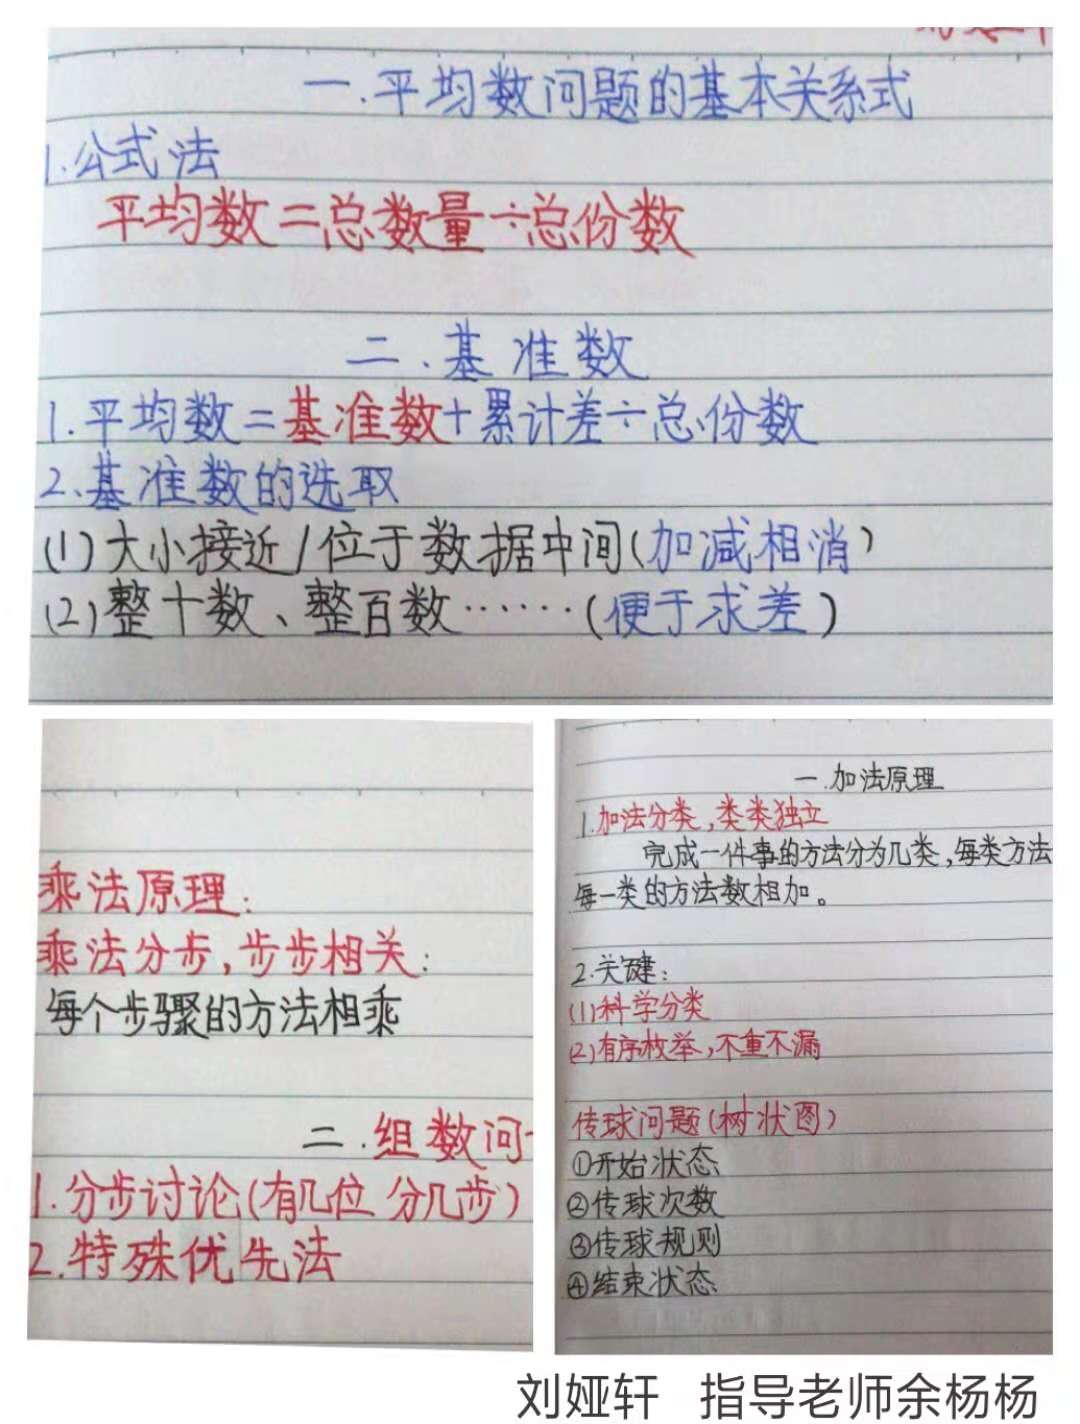 一.平均数问题的基本关系式
1.公式法
平均数=总数量÷总份数
二.基准数
1.平均数=基准数+累计差÷总份数
2.基准数的选取
(1)大小接近/位于数据中间(加减相消)
(2)整十数、整百数……(便于求差)
乘法原理:
乘法分步,步步相关:
每个步骤的方法相乘
二.组数问
1.分步讨论(有几位 分几步)
2.特殊优先法
一.加法原理
1.加法分类,类类独立
完成一件事的方法分为几类,每类方法
每一类的方法数相加。
2.关键:
(1)科学分类
(2)有序枚举,不重不漏
传球问题(树状图)
①开始状态
②传球次数
③传球规则
④结束状态
刘娅轩 指导老师余杨杨